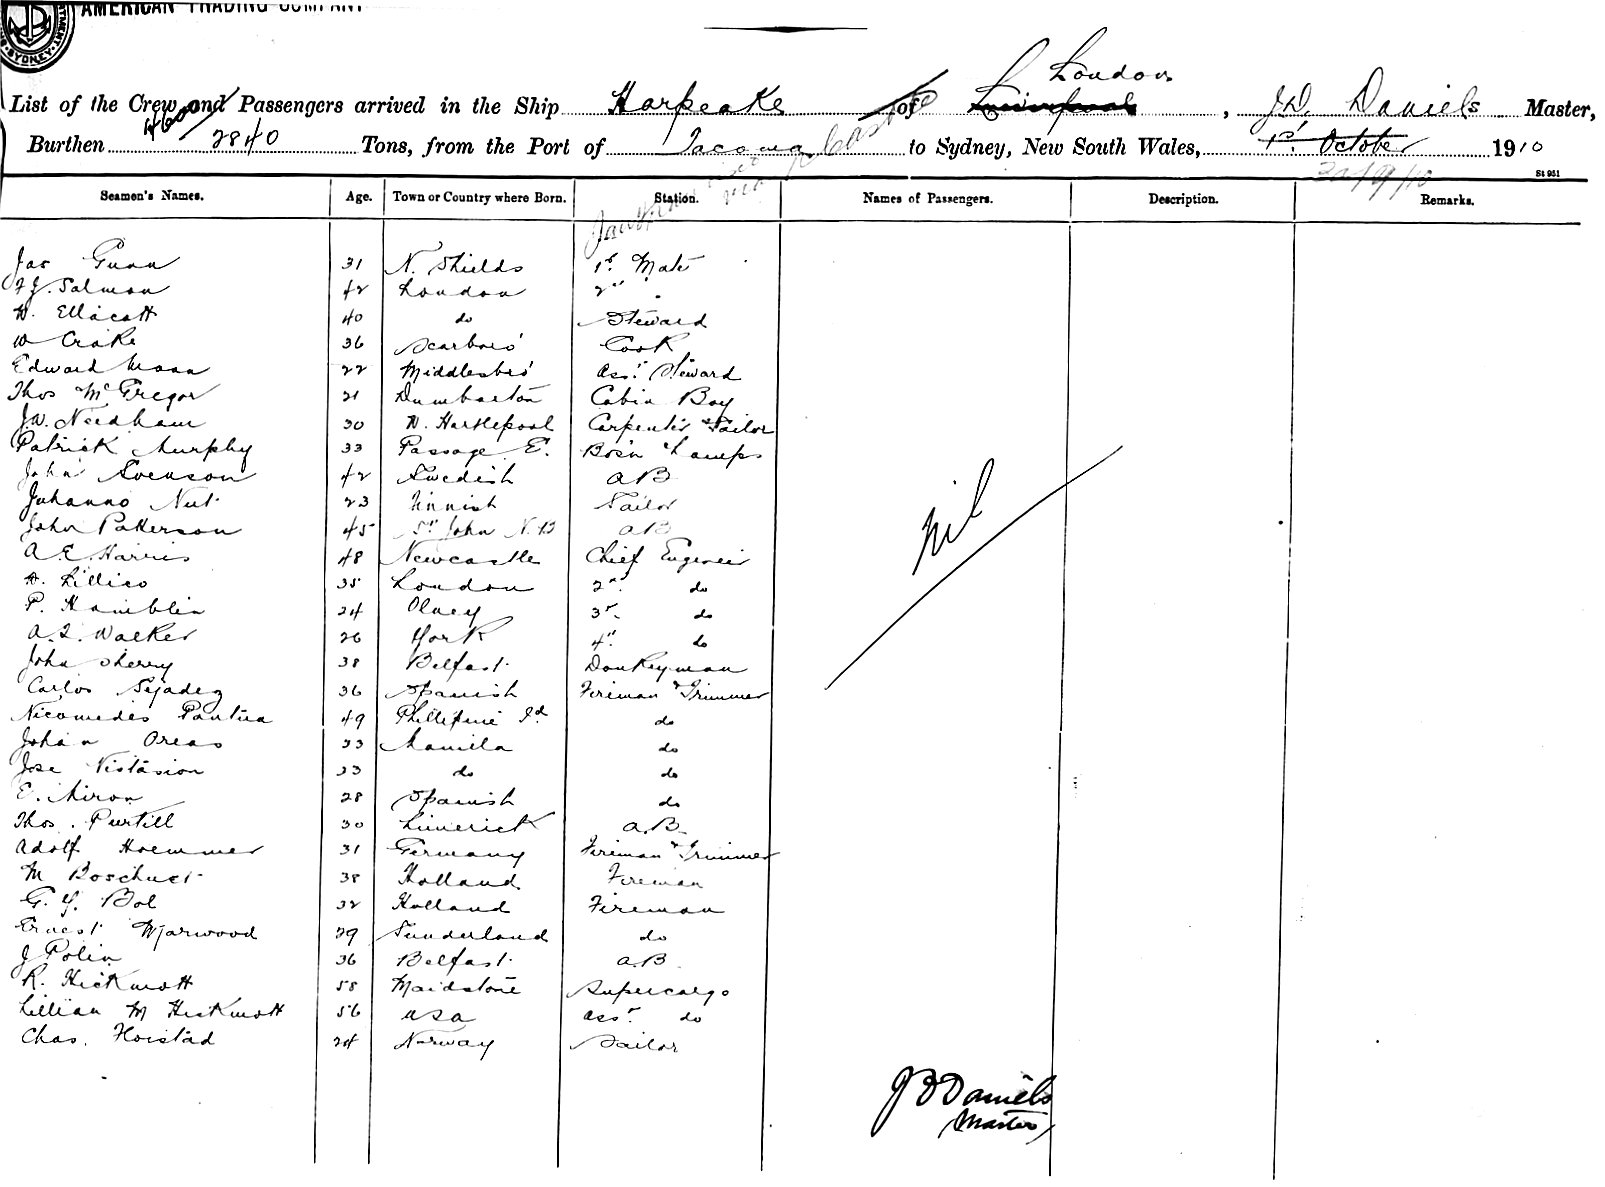 AMERICAN TRADING COMPANY
SYDNEY
London
List of the Crew and Passengers arrived in the Ship Harpeake of Liverpool, J.D. Daniels Master,
Burthen 4600 2840 Tons, from the Port of Tacoma to Sydney, New South Wales, 1st October 1910
30/9/10
St 951
Seamen's Names. Age. Town or Country where Born. Station. Names of Passengers. Description. Remarks.
Jas Gunn 31 N. Shields 1st Mate
F J. Salmon 42 London 2nd "
W. Ellacott 40 do Steward
W Crake 36 Scarboro' Cook
Edward Mann 22 Middlesbro' Asst. Steward
Thos McGregor 21 Dumbarton Cabin Boy
J.W. Needham 30 W. Hartlepool Carpenter & Sailor
Patrick Murphy 33 Passage E. Bosn & Lamps
John Svenson 42 Swedish A B
Juhanno Nut 23 Finnish Sailor
John Patterson 45 St John N.B AB
A. E. Harris 48 Newcastle Chief Engineer
W. Lillico 35 London 2nd do
P. Hamblin 24 Olney 3rd do
A. L. Walker 26 York 4th do
John Sherry 38 Belfast Donkeyman
Carlos Sejadez 36 Spanish Fireman & Trimmer
Nicomedes Pantua 49 Phillipine Id do
Johan Oreas 33 Manila do
Jose Nistasion 33 do do
E. Miron 28 Spanish do
Thos. Purtill 30 Limerick A.B
Adolf Hoemmer 31 Germany Fireman & Trimmer
M Boschuet 38 Holland Fireman
G. Y. Bol 32 Holland Fireman
Ernest Marwood 29 Sunderland do
J Polin 36 Belfast A.B
R. Hickmott 58 Maidstone Supercargo
Lillian M Hickmott 56 USA Asst. do
Chas. Hoistad 24 Norway Sailor
nil
J D Daniels
Master